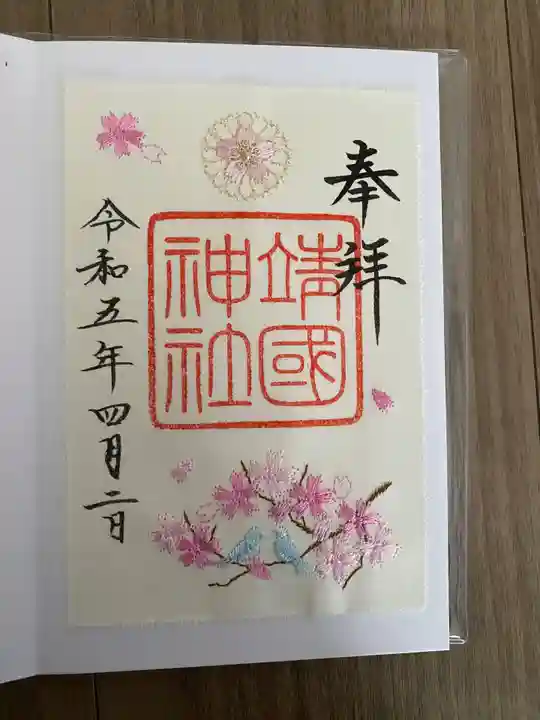 奉拝
靖國
神社
令和五年四月二日